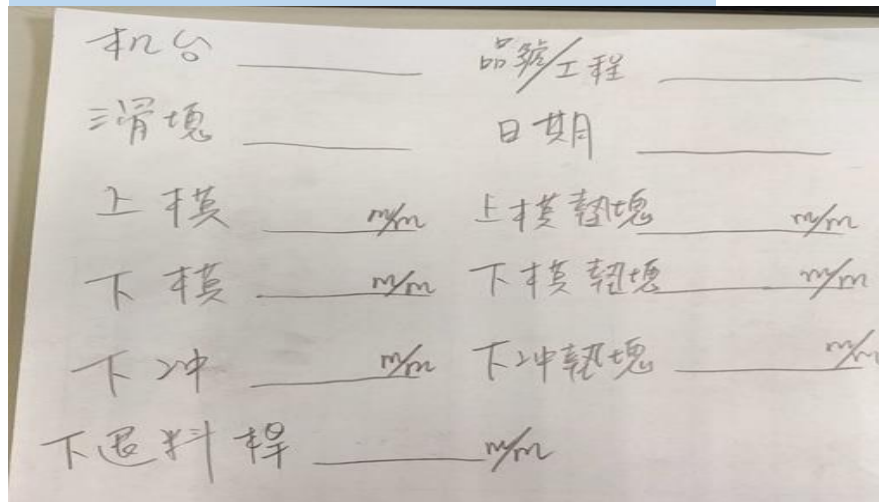 机台 ______ 品號/工程 ______
滑塊 ______ 日期 ______
上模 ______ m/m 上模墊塊 ______ m/m
下模 ______ m/m 下模墊塊 ______ m/m
下冲 ______ m/m 下冲墊塊 ______ m/m
下退料桿 ______ m/m